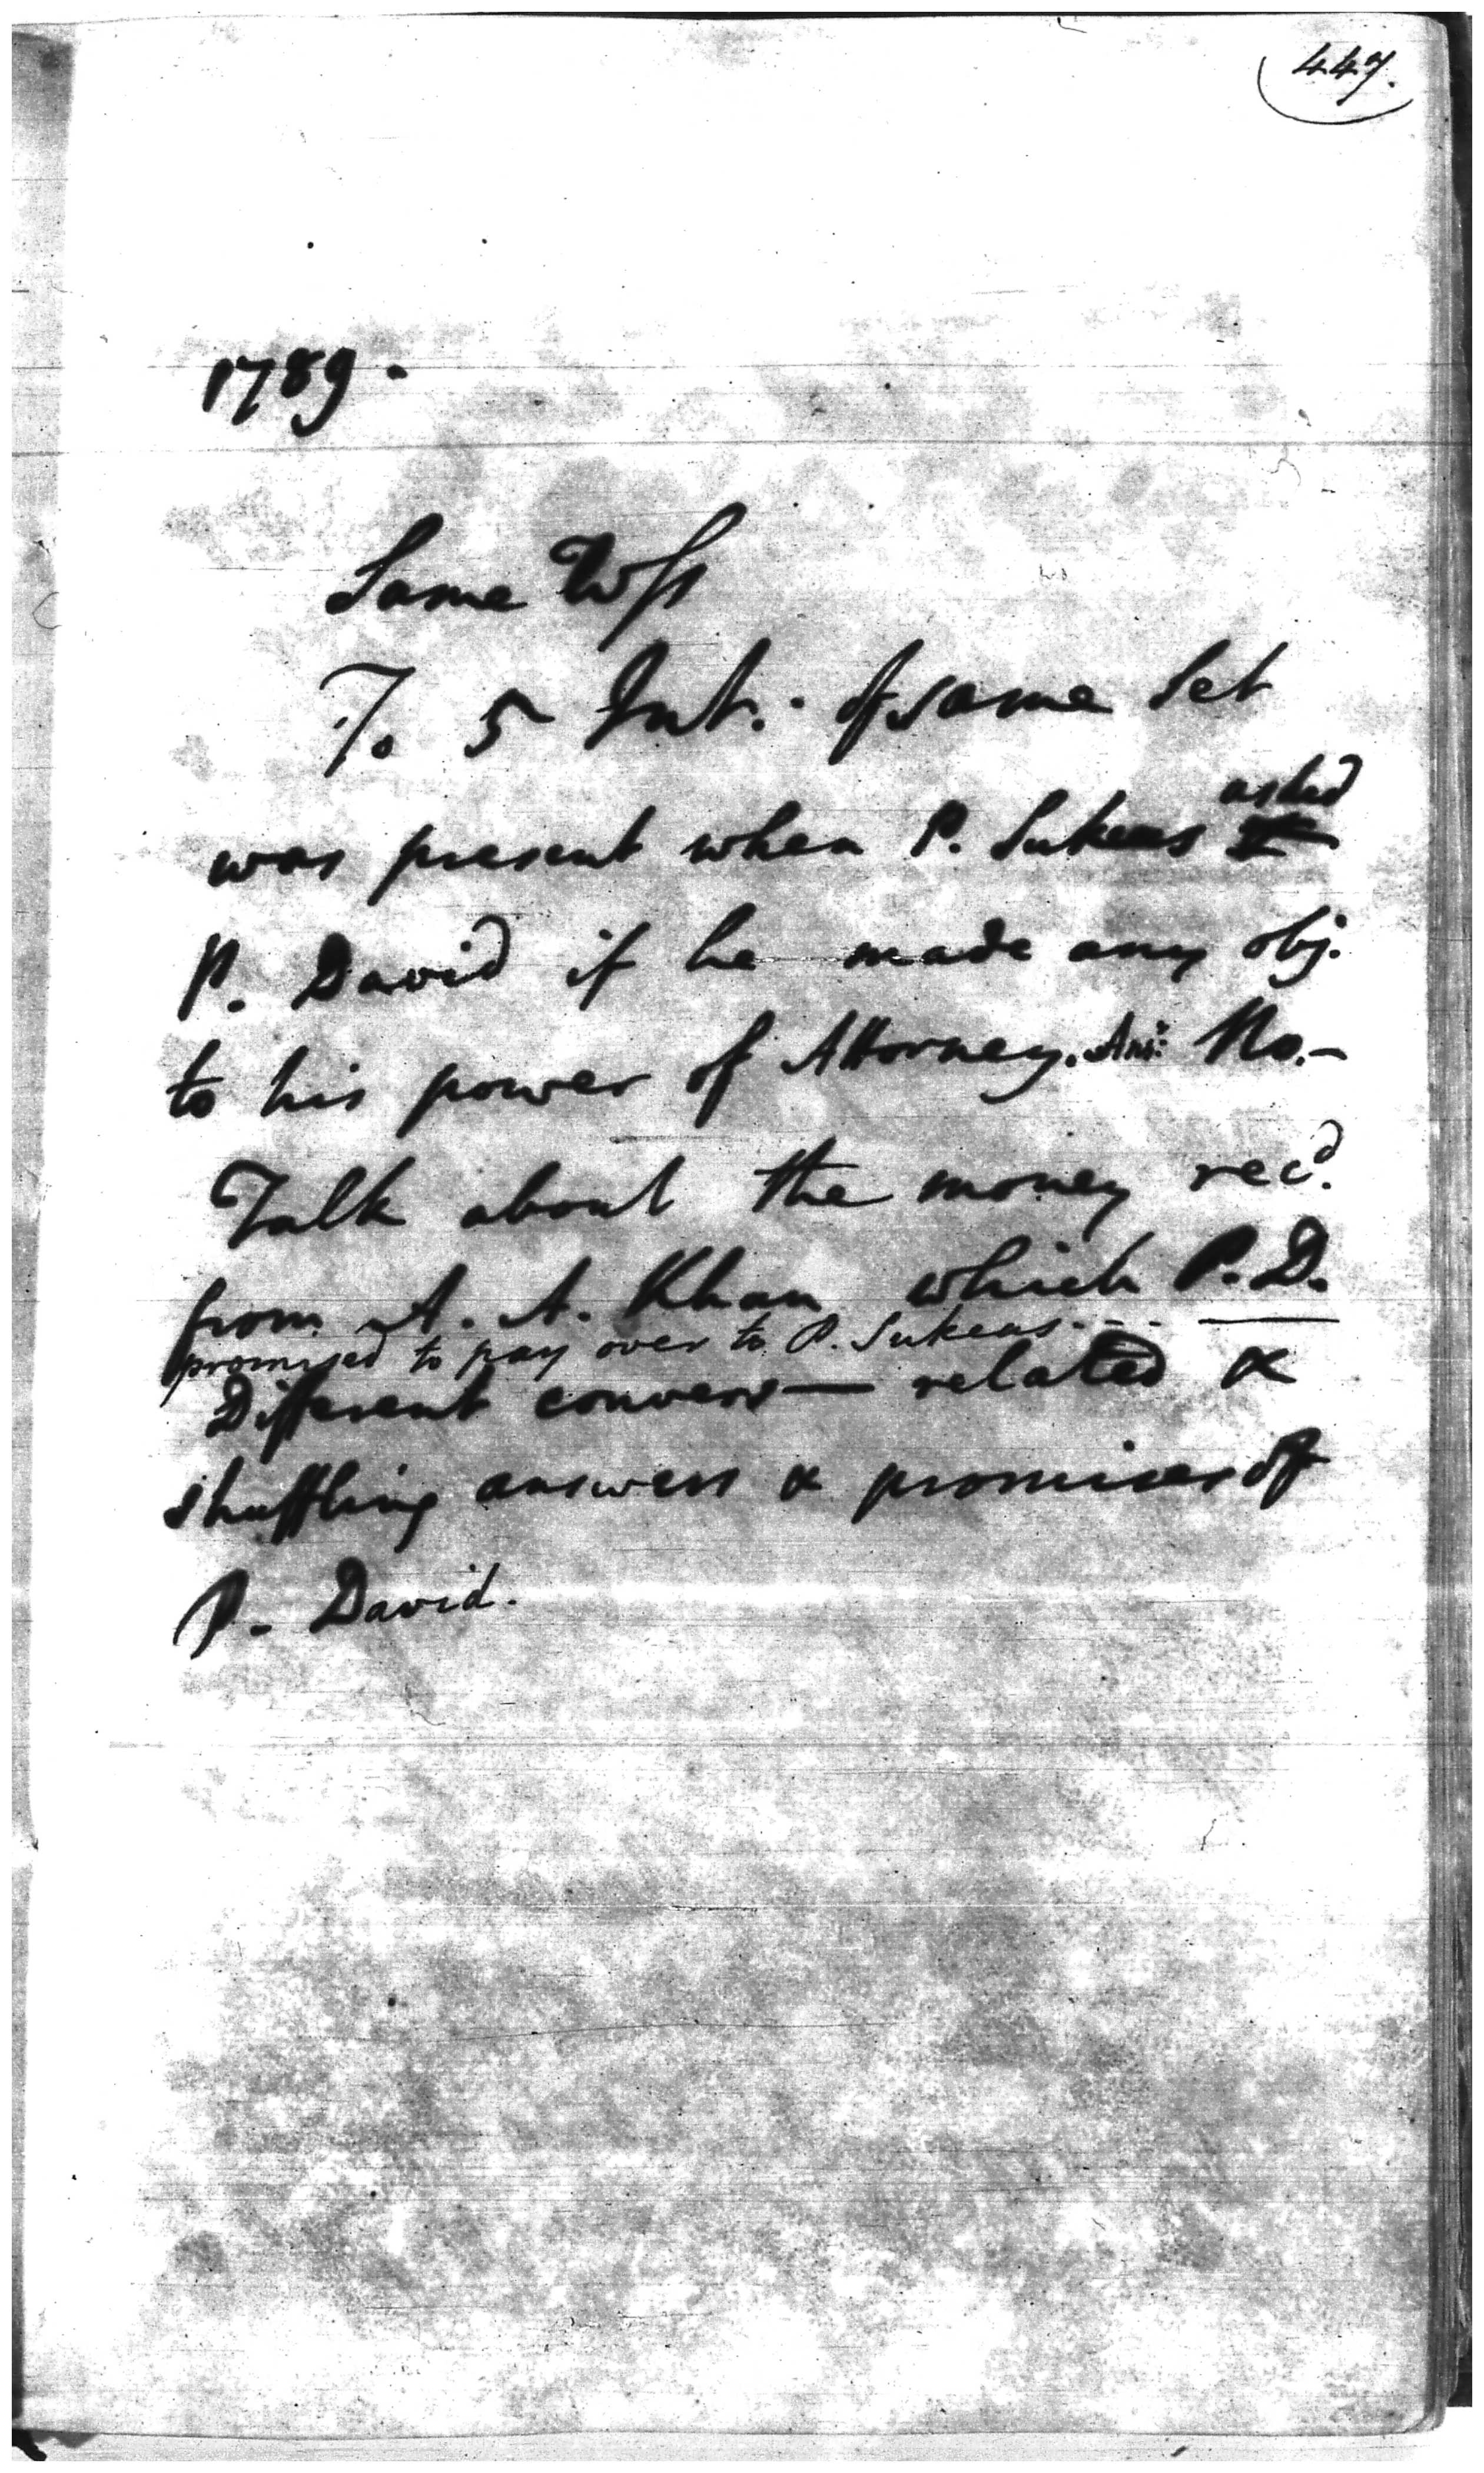 447.
1789.
Same Wss
To 5 Int. of same Set
asked
was present when P. Sukeas
P. David if he made any obj.
to his power of Attorney. Ans: No.-
Talk about the money recd.
from A. A. Khan which P. D.
promised to pay over to P. Sukeas. - -
Different convers— related &
shuffling answers & promises of
P. David.